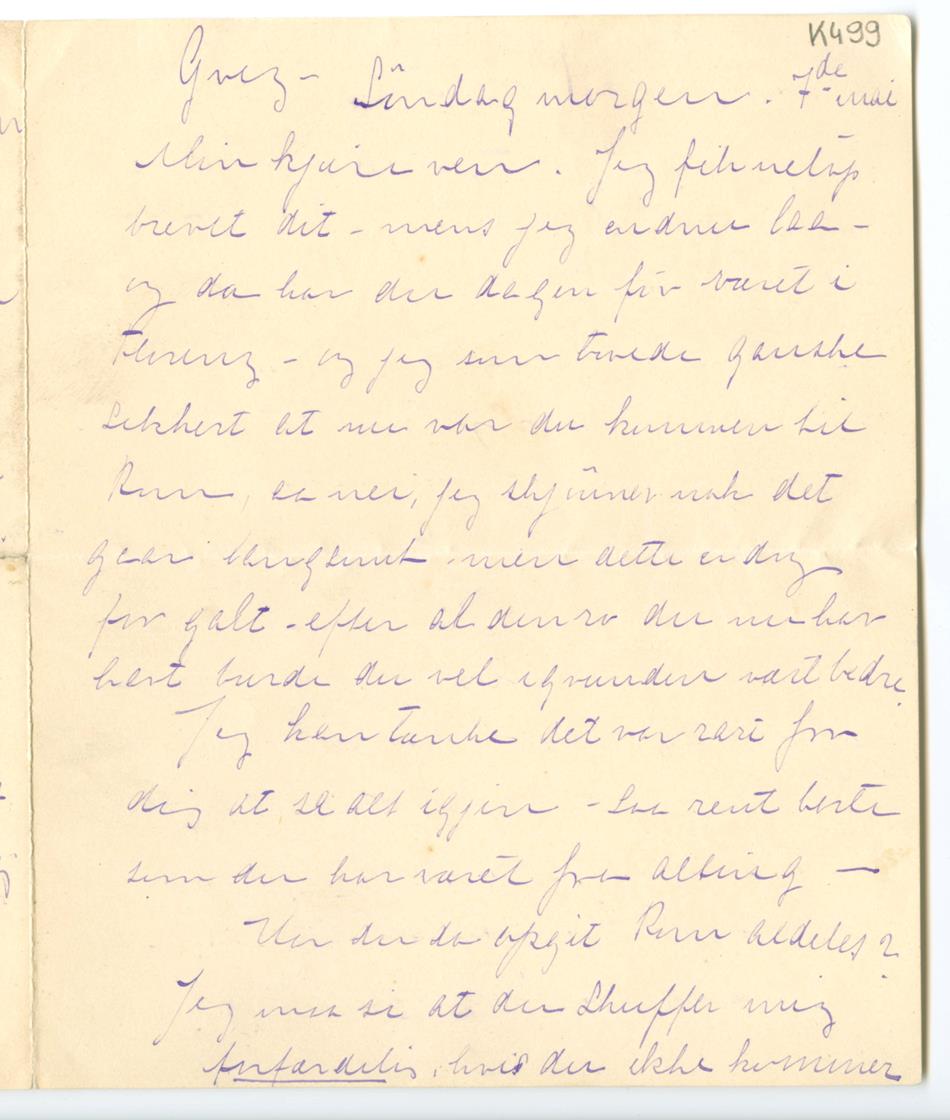 K499
Grez – Söndag morgen. 7de mai
Min kjære ven. Jeg fik netop
brevet dit – mens jeg endnu laa –
og da har du dagen för været i
Florenz – og jeg som troede ganske
sikkert at nu var du kommen til
Rom, aa nei, jeg skjönner nok det
gaar langsomt – men dette er dog
for galt – efter al den ro du nu har
havt burde du vel igrunden vært bedre.
Jeg kan tænke det var rart for
dig at se alt igjen – saa rent borte
som du har været fra alting —
Har du da opgit Rom aldeles?
Jeg maa si at du skuffer mig
forfærdelig, hvis du ikke kommer